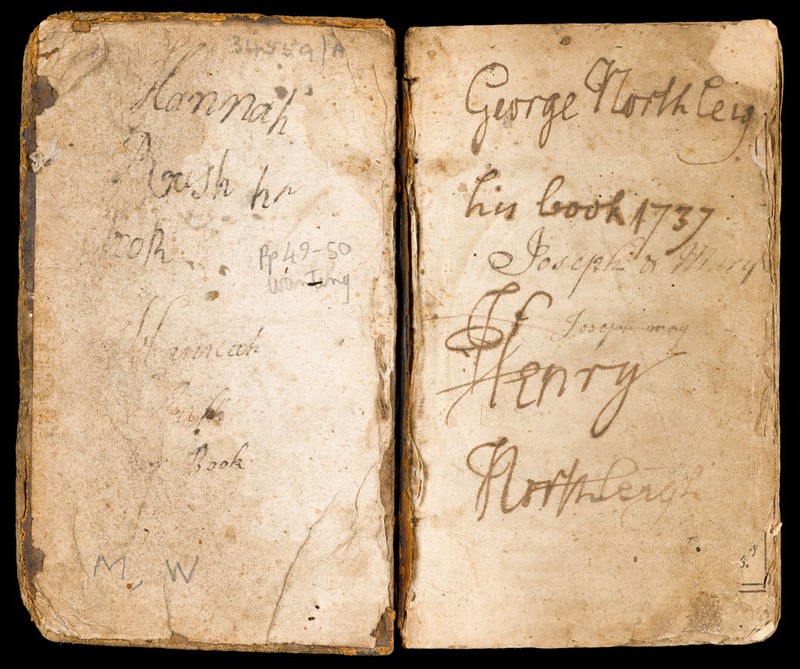 34559/A
Hannah
Rush hr
Book
Pp 49-50
Wanting
Hannah
Rush
Book
M, W
George Northleig
his book 1737
Joseph & Henry
Joseph may
Henry
Northleigh